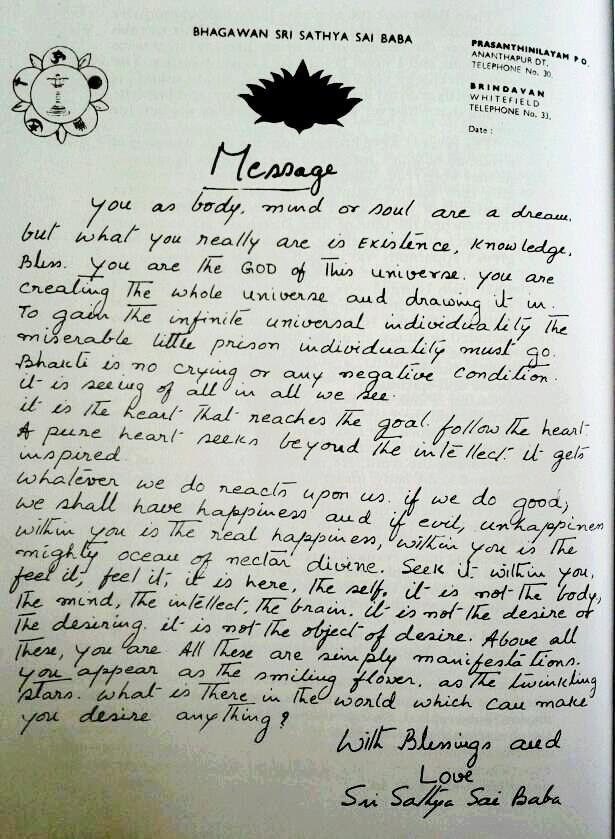 BHAGAWAN SRI SATHYA SAI BABA
PRASANTHINILAYAM P O.
ANANTHAPUR DT.
TELEPHONE No. 30.
BRINDAVAN
WHITEFIELD
TELEPHONE No. 33.
Date :
Message
You as body, mind or soul are a dream,
but what you really are is Existence, Knowledge,
Bliss. You are the GOD of This universe. you are
creating The whole universe and drawing it in.
To gain The infinite universal individuality The
miserable little prison individuality must go.
Bhakti is no crying or any negative condition.
it is seeing of all in all we see.
it is the heart That reaches The goal. follow the heart.
A pure heart seeks beyond the intellect. it gets
inspired.
Whatever we do reacts upon us. if we do good,
we shall have happiness and if evil, unhappiness
within you is the real happiness, within you is the
mighty ocean of nectar divine. Seek it within you,
feel it, feel it, it is here, The self. it is not the body,
The mind, The intellect, the brain. it is not the desire or
The desiring. it is not the object of desire. Above all
These, you are All These are simply manifestations.
you appear as the smiling flower, as the twinkling
stars. What is There in the world which can make
you desire anything?
With Blessings and
Love
Sri Sathya Sai Baba